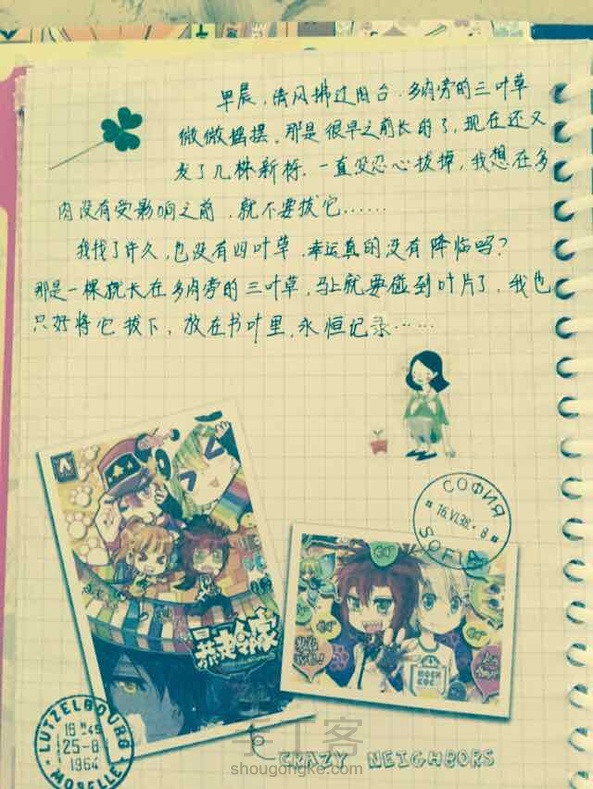 早晨，清风拂过阳台，多肉旁的三叶草
微微摇摆，那是很早之前长的了，现在还又
发了几株新树，一直没忍心拔掉，我想在多
肉没有受影响之前，就不要拔它……
我找了许久，也没有四叶草，幸运真的没有降临吗？
那是一棵挽长在多肉旁的三叶草，马上就要碰到叶片了，我也
只好将它拔下，放在书叶里，永恒记录……
СОФИЯ
16.VI.38.-8
SOFIA
暴走邻家
MOEN
COC
LUTZELBOURG
25-8
1964
MOSELLE
CRAZY NEIGHBORS
手工客
shougongke.com